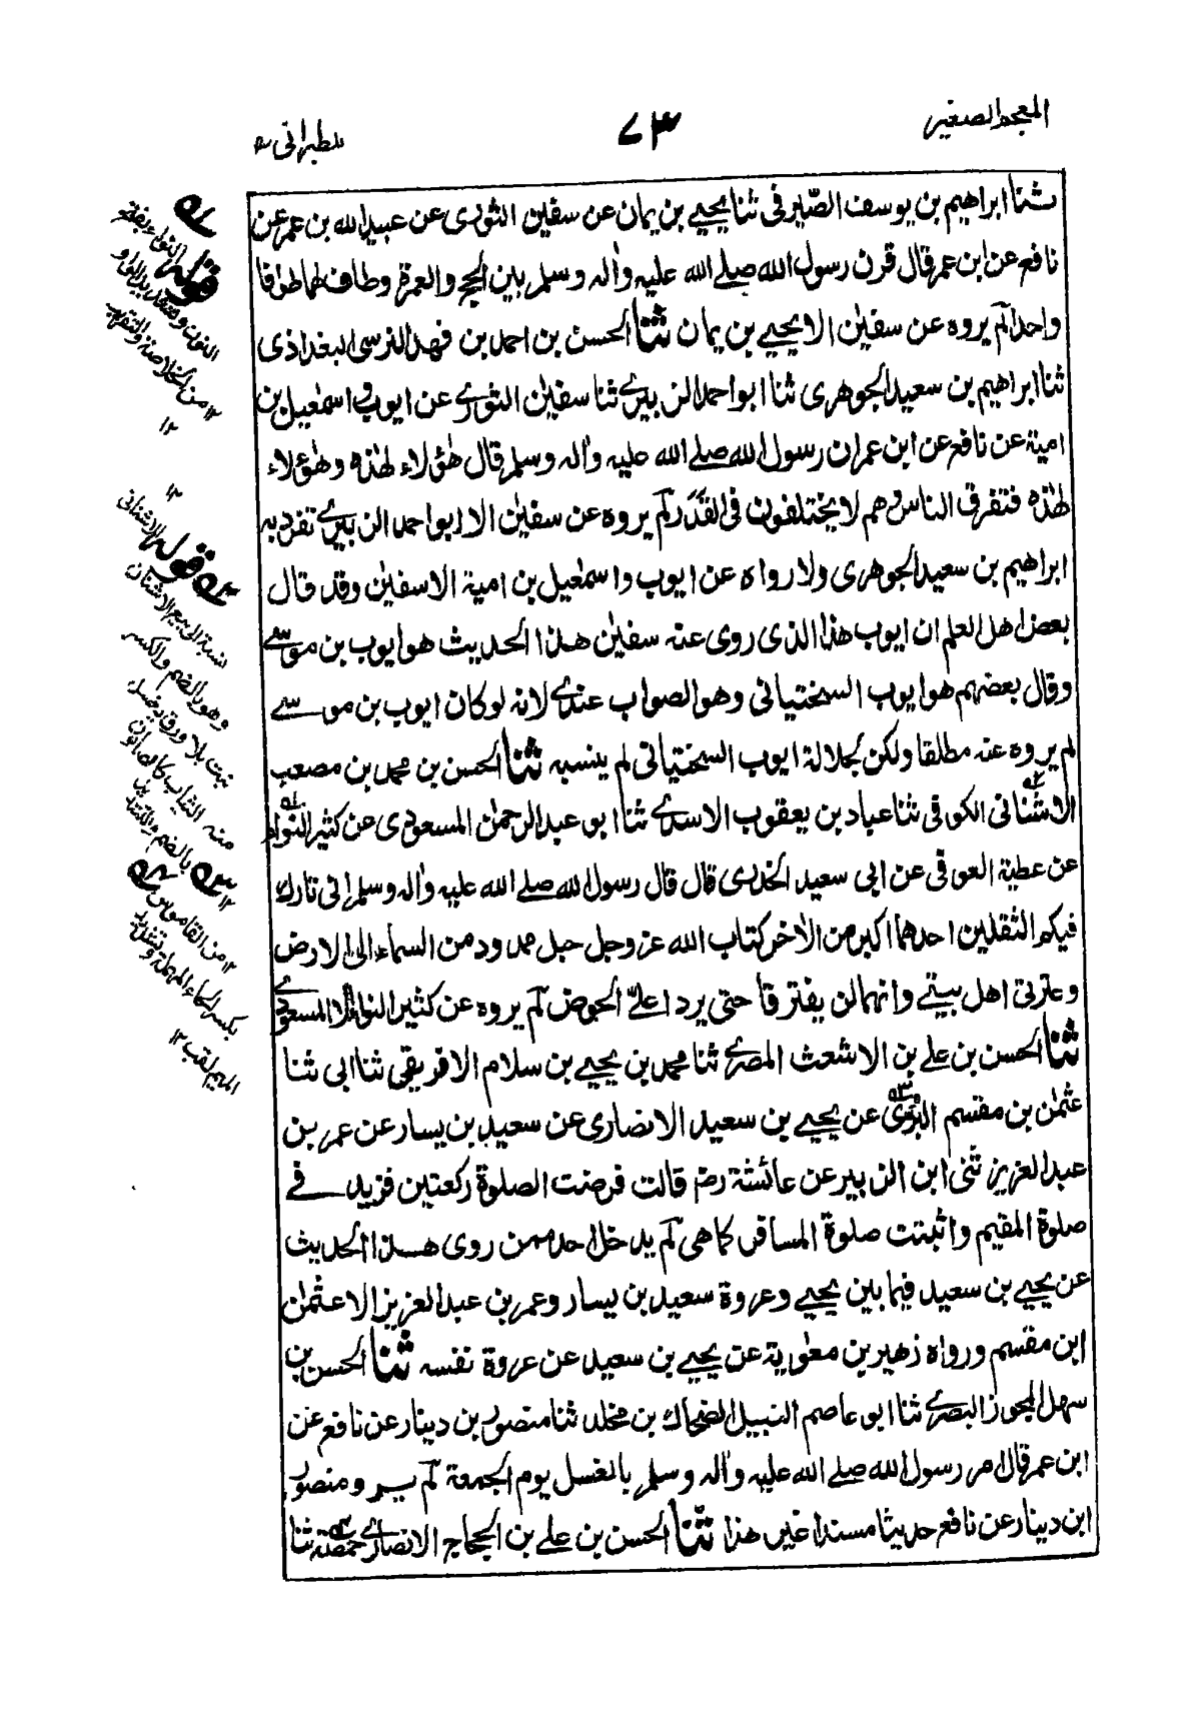 المعجم الصغير
۷۳
للطبرانی
ثنا ابراهیم بن یوسف الصیرفی ثنا یحیی بن یمان عن سفین الثوری عن عبید الله بن عمر عن
نافع عن ابن عمر قال قرن رسول الله صلی الله علیه واله وسلم بین الحج والعمرة وطاف لهما طوافا
واحدا لم یروه عن سفین الا یحیی بن یمان ثنا الحسن بن احمد بن فهد النرسی البغداذی
ثنا ابراهیم بن سعید الجوهری ثنا ابو احمد الزبیری ثنا سفین الثوری عن ایوب واسمعیل بن
امیة عن نافع عن ابن عمر ان رسول الله صلی الله علیه واله وسلم قال هؤلاء لهذه وهؤلاء
لهذه فتفرق الناس وهم لا یختلفون فی القدر لم یروه عن سفین الا ابو احمد الزبیری تفرد به
ابراهیم بن سعید الجوهری ولا رواه عن ایوب واسمعیل بن امیة الا سفین وقد قال
بعض اهل العلم ان ایوب هذا الذی روی عنه سفین هذا الحدیث هو ایوب بن موسی
وقال بعضهم هو ایوب السختیانی وهو الصواب عندی لانه لو کان ایوب بن موسی
لم یروه عنه مطلقا ولکن لجلالة ایوب السختیانی لم ینسبه ثنا الحسن بن محمد بن مصعب
الاشنانی الکوفی ثنا عباد بن یعقوب الاسدی ثنا ابو عبد الرحمن المسعودی عن کثیر النواء
عن عطیة العوفی عن ابی سعید الخدری قال قال رسول الله صلی الله علیه واله وسلم انی تارك
فیکم الثقلین احدهما اکبر من الاخر کتاب الله عز وجل حبل ممدود من السماء الی الارض
وعترتی اهل بیتی وانهما لن یفترقا حتی یردا علیّ الحوض لم یروه عن کثیر النواء الا المسعودی
ثنا الحسن بن علی بن الاشعث المصری ثنا محمد بن یحیی بن سلام الافریقی ثنا ابی ثنا
عثمن بن مقسم البری عن یحیی بن سعید الانصاری عن سعید بن یسار عن عمر بن
عبد العزیز ثنی ابن الزبیر عن عائشة رض قالت فرضت الصلوة رکعتین فزید فی
صلوة المقیم واثبتت صلوة المسافر کما هی لم یدخل احد ممن روی هذا الحدیث
عن یحیی بن سعید فیما بین یحیی وعروة سعید بن یسار وعمر بن عبد العزیز الا عثمن
ابن مقسم ورواه زهیر بن معویة عن یحیی بن سعید عن عروة نفسه ثنا الحسن بن
سهل المجوز البصری ثنا ابو عاصم النبیل الضحاك بن مخلد ثنا منصور بن دینار عن نافع عن
ابن عمر قال امر رسول الله صلی الله علیه واله وسلم بالغسل یوم الجمعة لم یسر ومنصور
ابن دینار عن نافع حدیثا مسندا غیر هذا ثنا الحسن بن علی بن الحجاج الانصاری حمصة ثنا
قوله النواء بفتح
النون وتشدید الواو
۱۲ من الخلاصة والتقریب
۱۲
۱۲
قوله الاشنانی
نسبة الی بیع الاشنان
وهو الضم والکسر
نبت بلا ورق
منه الثیاب
بالضم
۱۲
۱۲ من القاموس
بکسر الحاء المهملة وتشدید
المیم لقب ۱۲